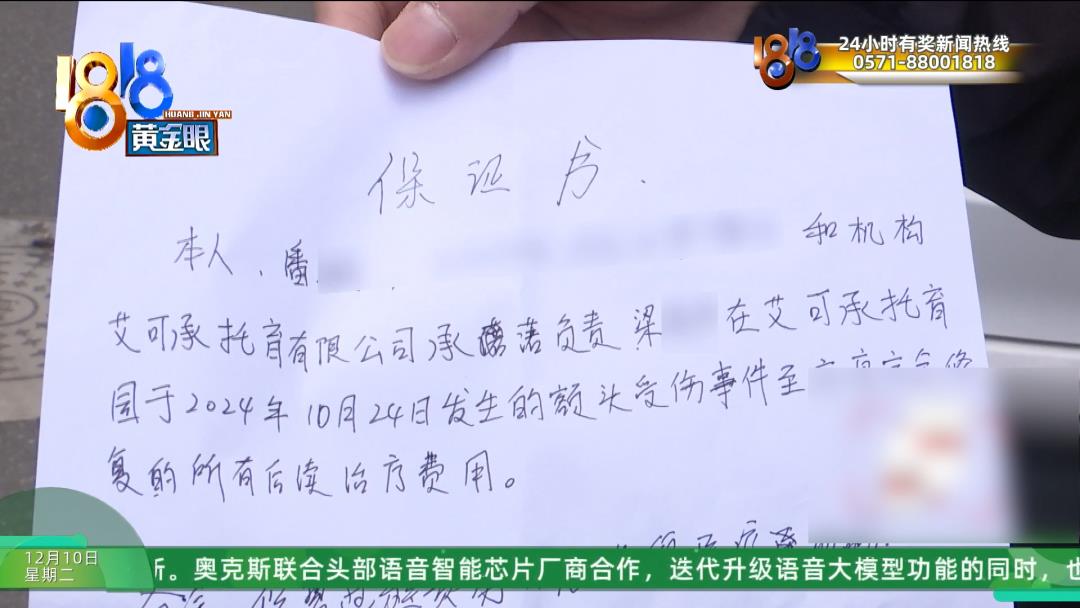 1818
HUANG JIN YAN
黄金眼
24小时有奖新闻热线
0571-88001818
保证书.
本人、潘 和机构
艾可承托育有限公司承诺负责梁 在艾可承托育
园于2024年10月24日发生的额头受伤事件至
复的所有后续治疗费用。
12月10日
星期二
。奥克斯联合头部语音智能芯片厂商合作，迭代升级语音大模型功能的同时，也